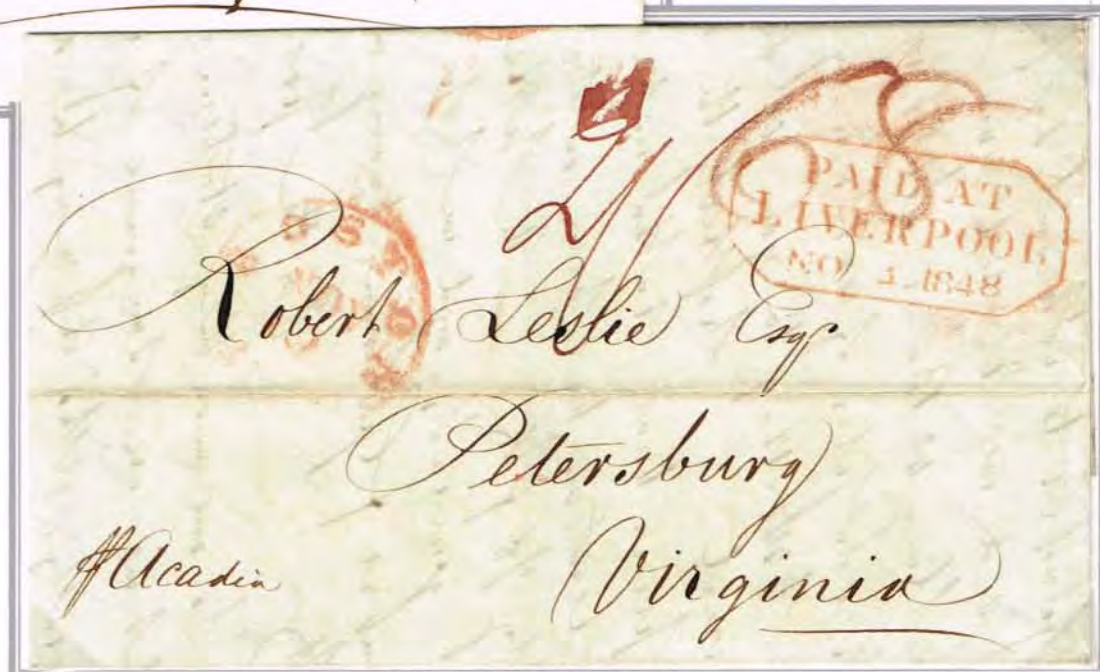 PAID AT
LIVERPOOL
NO 4 1848
Robert Leslie Esqr.
Petersburg
Virginia
Acadia